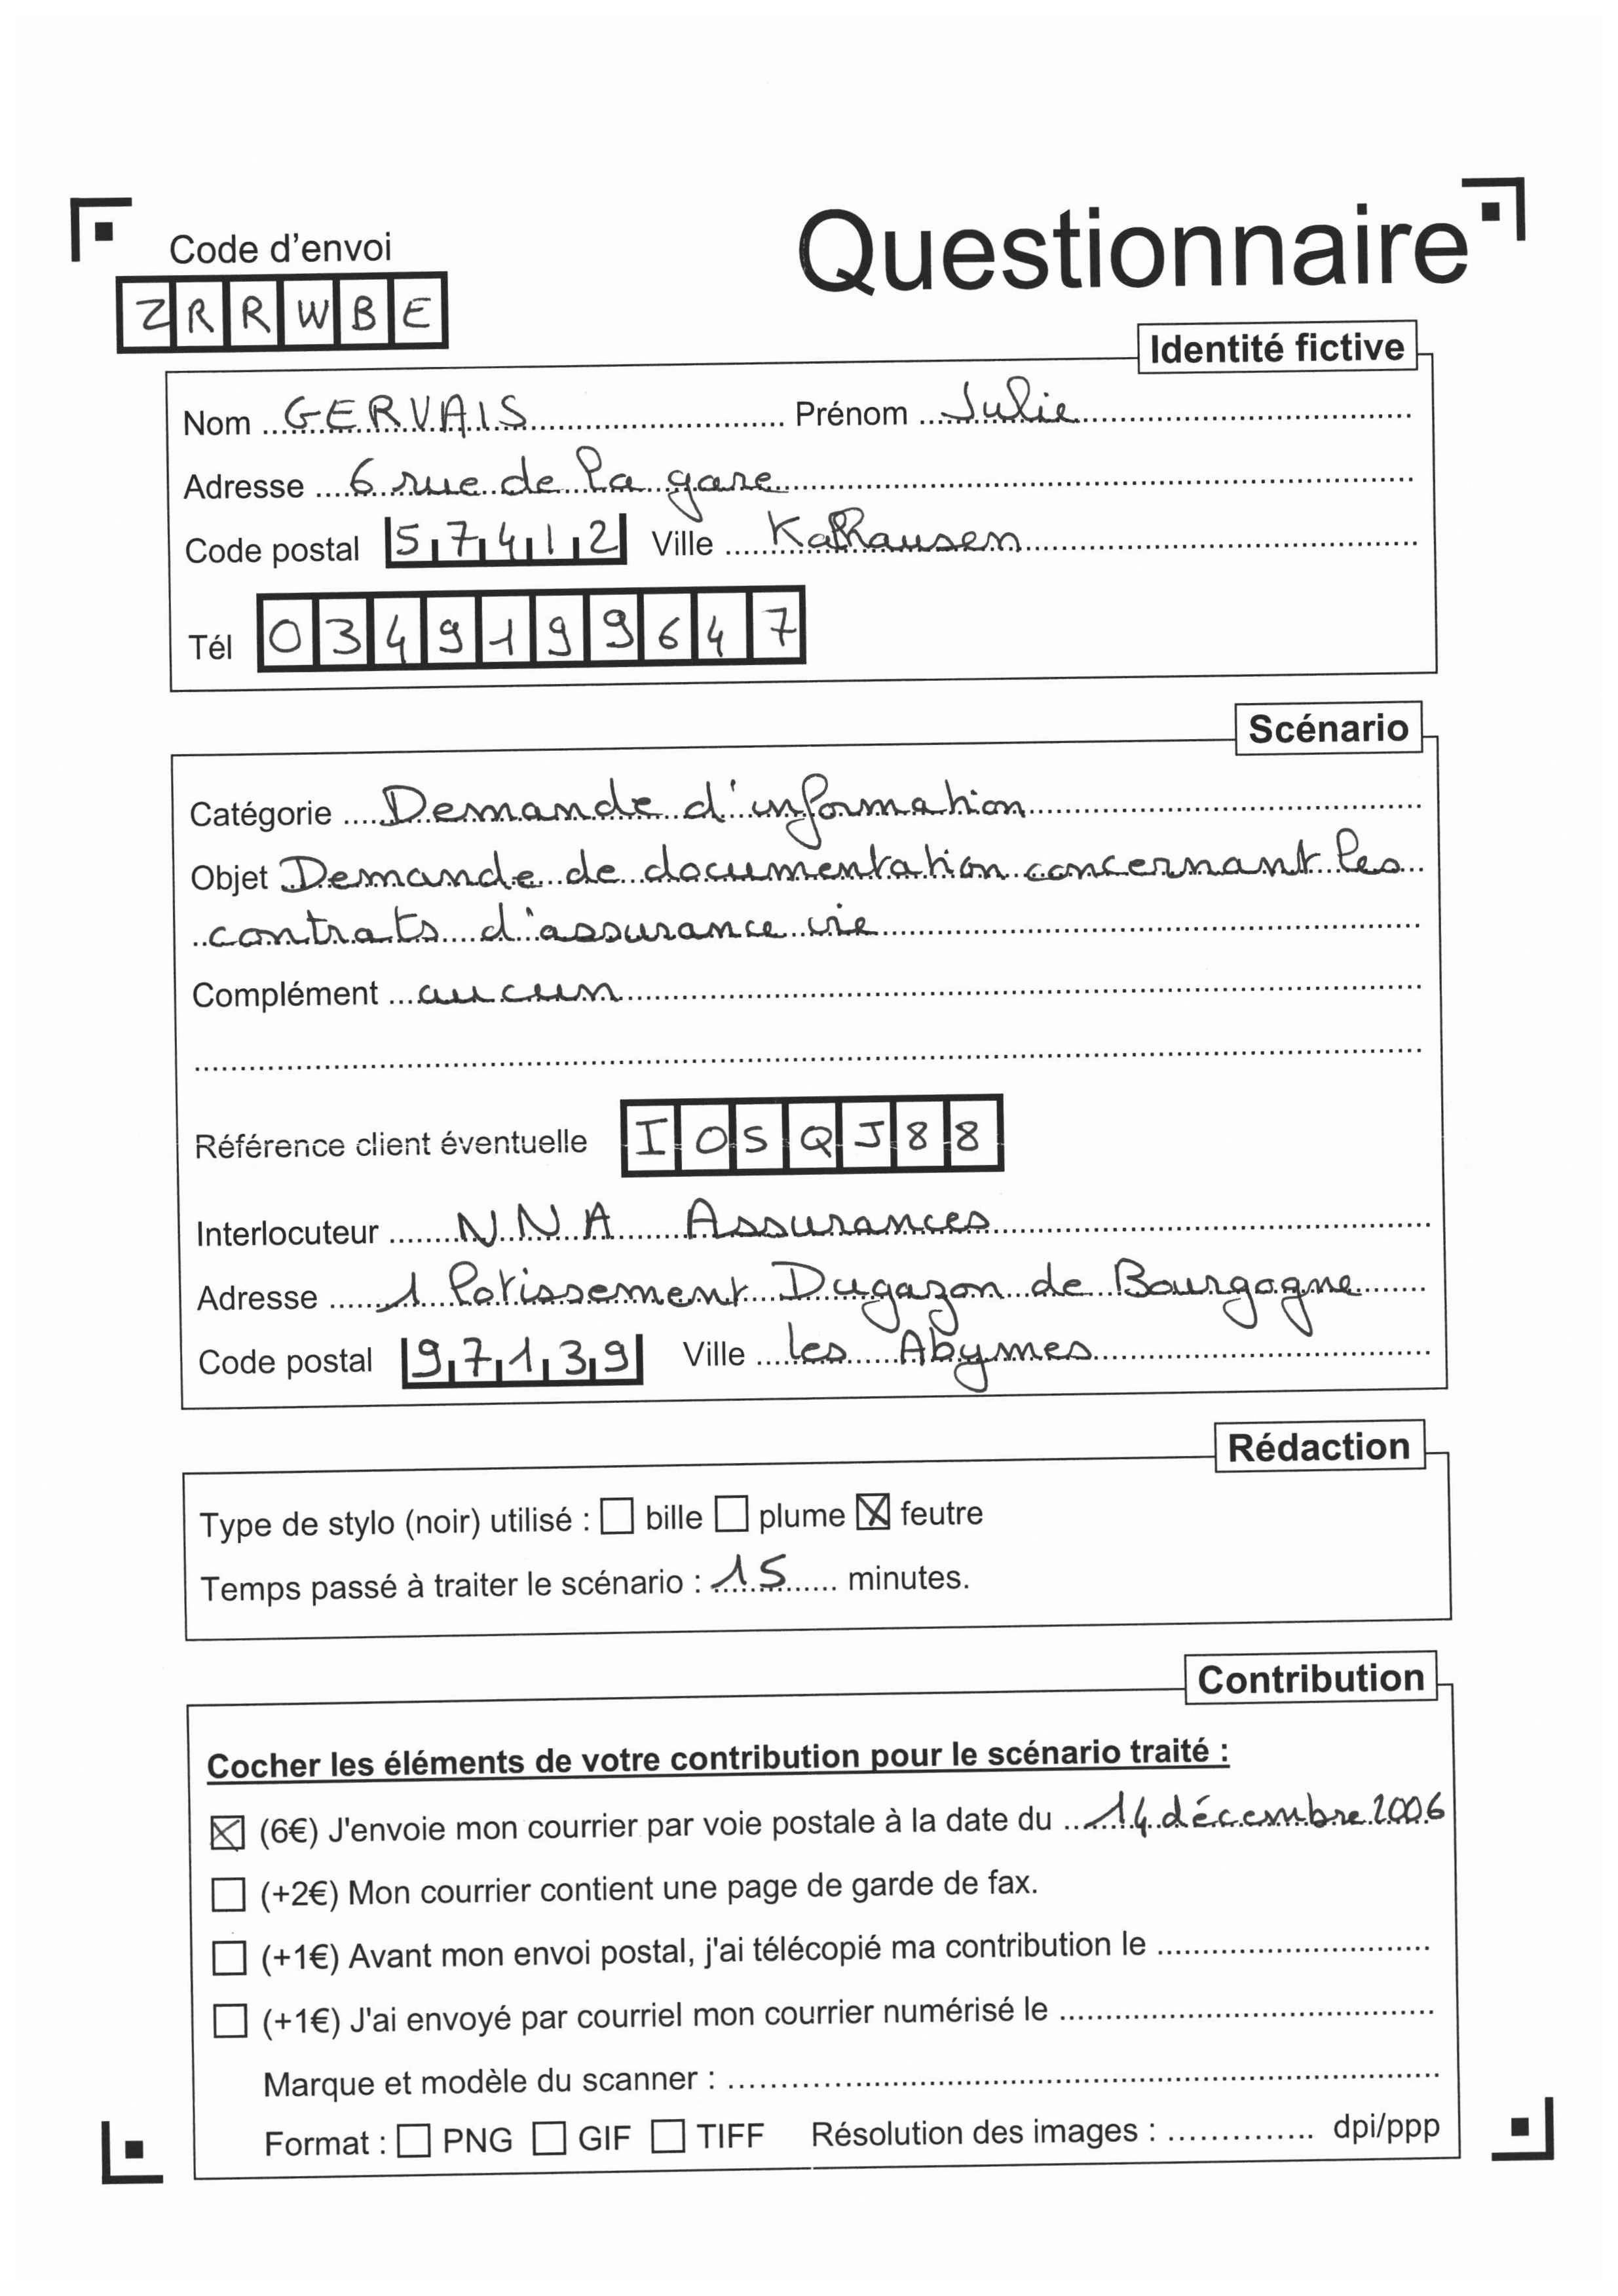 Code d'envoi
Questionnaire
ZRRWBE
Identité fictive
Nom GERVAIS Prénom Julie
Adresse 6 rue de la gare
Code postal 57412 Ville Kalhausen
Tél 0349199647
Scénario
Catégorie Demande d'information
Objet Demande de documentation concernant les
contrats d'assurance vie
Complément aucun
Référence client éventuelle IOSQJ88
Interlocuteur NNA Assurances
Adresse 1 lotissement Dugazon de Bourgogne
Code postal 97139 Ville les Abymes
Rédaction
Type de stylo (noir) utilisé : ☐ bille ☐ plume ☒ feutre
Temps passé à traiter le scénario : 15 minutes.
Contribution
Cocher les éléments de votre contribution pour le scénario traité :
☒ (6€) J'envoie mon courrier par voie postale à la date du 14 décembre 2006
☐ (+2€) Mon courrier contient une page de garde de fax.
☐ (+1€) Avant mon envoi postal, j'ai télécopié ma contribution le
☐ (+1€) J'ai envoyé par courriel mon courrier numérisé le
Marque et modèle du scanner :
Format : ☐ PNG ☐ GIF ☐ TIFF Résolution des images : dpi/ppp